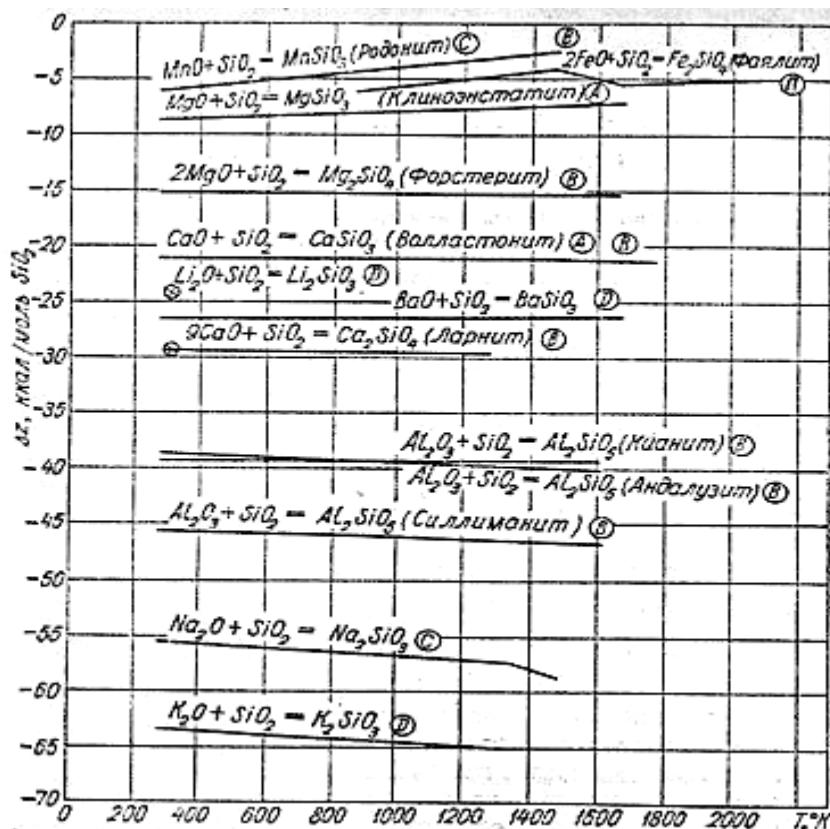 0
-5
-10
-15
-20
-25
-30
-35
-40
-45
-50
-55
-60
-65
-70
ΔZ, ккал/моль SiO₂
MnO+SiO₂=MnSiO₃(Родонит) Ⓒ
Ⓑ
2FeO+SiO₂=Fe₂SiO₄(Фаялит)
Ⓓ
MgO+SiO₂=MgSiO₃ (Клиноэнстатит) Ⓐ
2MgO+SiO₂=Mg₂SiO₄(Форстерит) Ⓑ
CaO+SiO₂=CaSiO₃(Волластонит) Ⓐ Ⓑ
Li₂O+SiO₂=Li₂SiO₃ Ⓓ
BaO+SiO₂=BaSiO₃ Ⓓ
2CaO+SiO₂=Ca₂SiO₄(Ларнит) Ⓑ
Al₂O₃+SiO₂=Al₂SiO₅(Кианит) Ⓑ
Al₂O₃+SiO₂=Al₂SiO₅(Андалузит) Ⓑ
Al₂O₃+SiO₂=Al₂SiO₅(Силлиманит) Ⓑ
Na₂O+SiO₂=Na₂SiO₃ Ⓒ
K₂O+SiO₂=K₂SiO₃ Ⓓ
0 200 400 600 800 1000 1200 1400 1600 1800 2000 T,°K